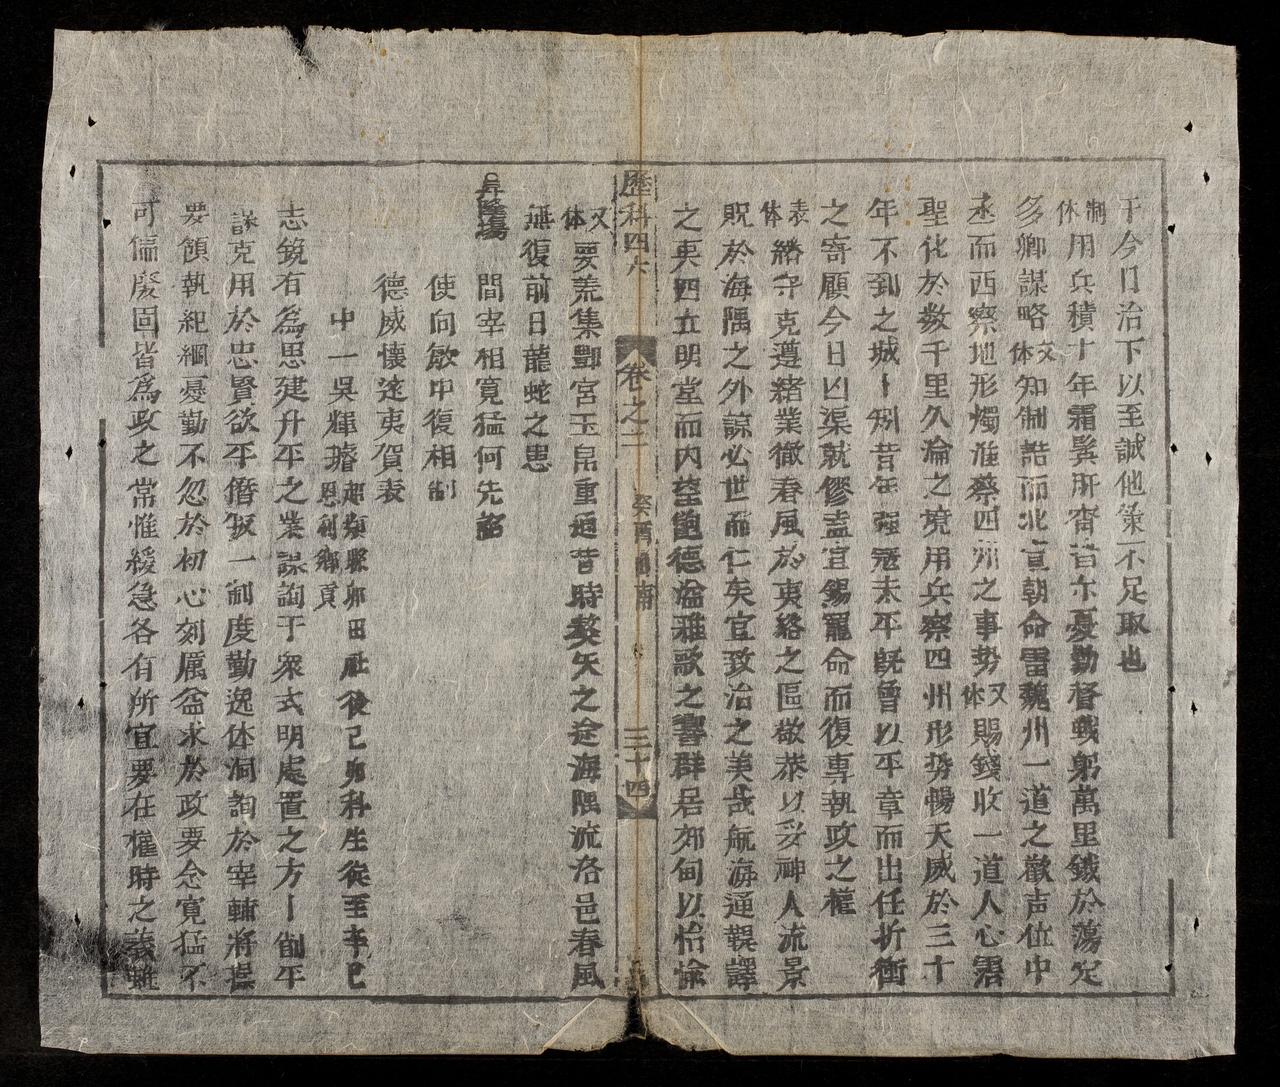 于今日治下以至誠他策不足取也
制体用兵積十年霜髩肝宵昔亦憂勤督戰躬萬里鐵於蕩定
多卿謀略文体知制誥而北宣朝命雷魏州一道之歡声位中
丞而西察地形燭淮蔡四州之事勢又体賜錢收一道人心霑
聖化於数千里久淪之境用兵察四州形势暢天威於三十
年不到之城〡矧昔年强冦未平旣曾以平章而出任折衝
之寄願今日凶渠就僇盍宜錫寵命而復專執政之權
表体綹守克遵緒業徹春風於夷絡之區敬恭以妥神人流景
貺於海隅之外諒必世而仁矣宜致治之美哉航海運誤譯
之夷四立明堂而内莹飽德溢雅歌之響群居郊甸以怡愉
歷科四六 卷之二 癸酉 三十四
又体要荒集酆宮玉帛重逓昔時楘矢之逵海隅流洛邑春風
無復前日龍蛇之患
昇隆塲 間宰相寬猛何先詔
使向敏中復相制
德威懷逺夷賀表
中一吳輝 超類縣卯田社後己夘科生徒至辛巳恩科鄉貢
志鋭有爲思建升平之業謀詢于衆式明處置之方〡制平
謀克用於忠賢欲平僭叛一制度勤逸体洞詢於宰輔將提
要領執紀綱憂勤不忽於初心刻厲益求於政要念寬猛不
可偏廢固皆爲政之常惟緩急各有所宜要在權時之義雖